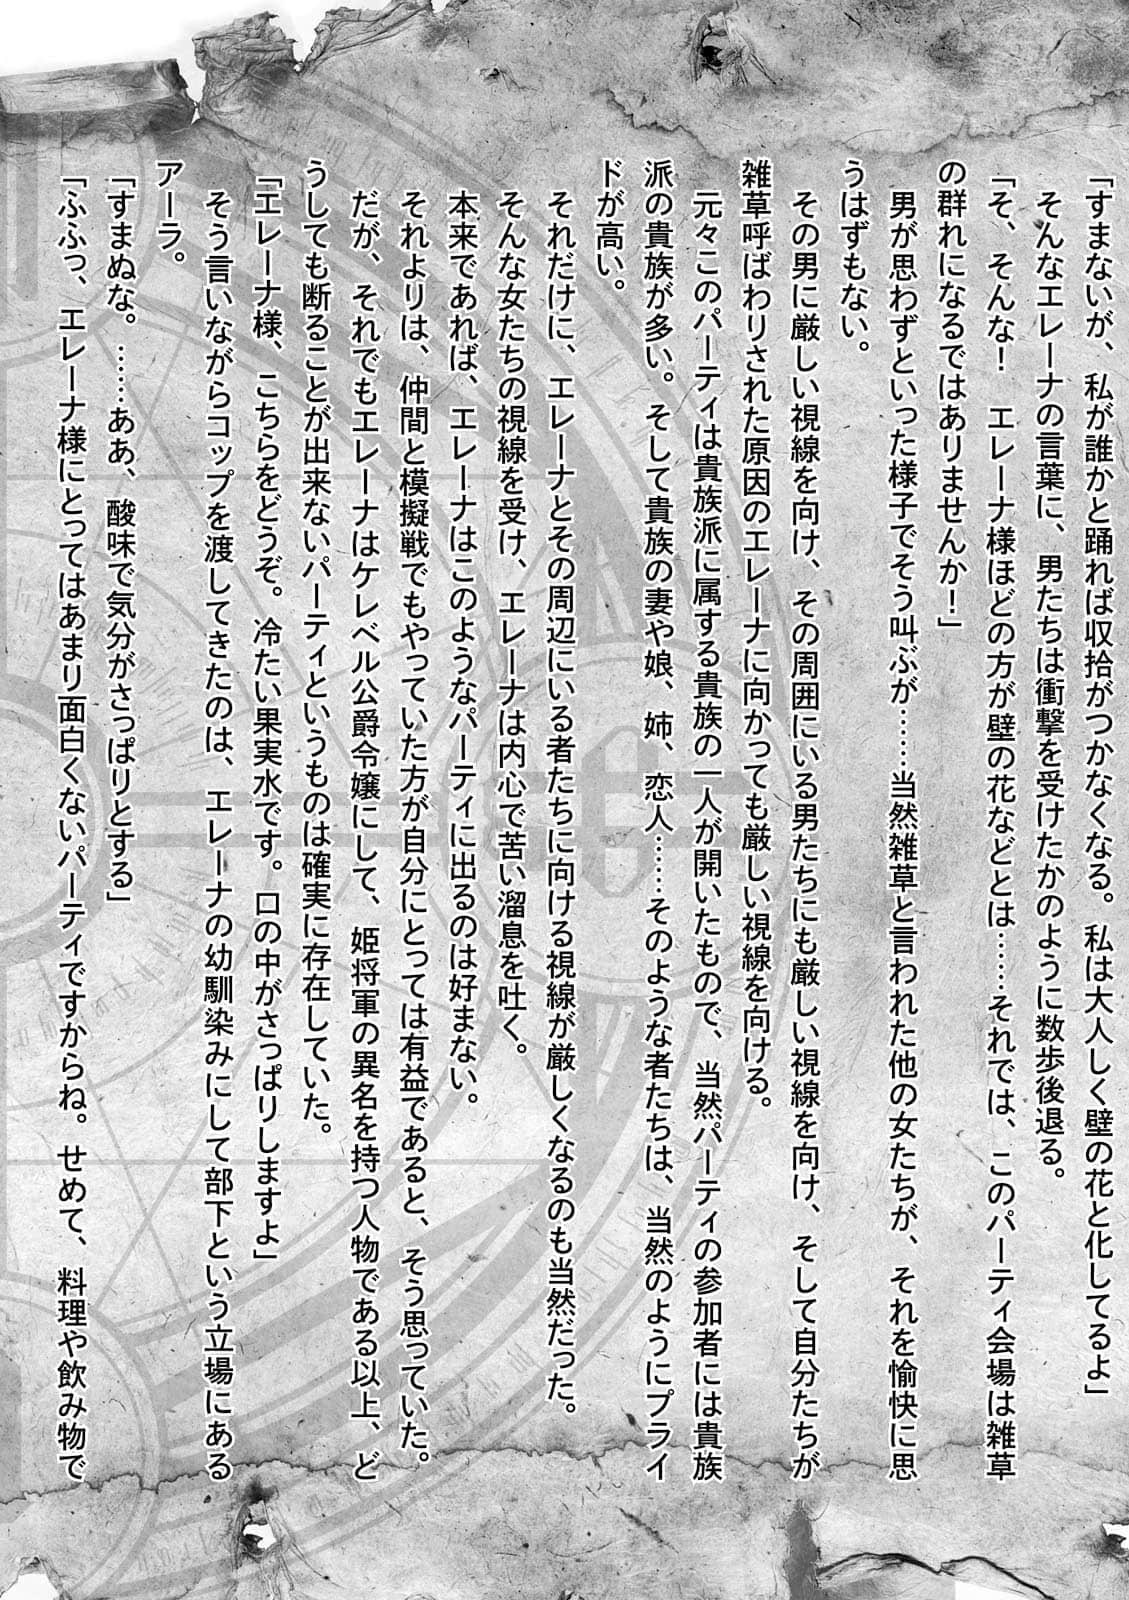 「すまないが、私が誰かと踊れば収拾がつかなくなる。私は大人しく壁の花と化してるよ」
そんなエレーナの言葉に、男たちは衝撃を受けたかのように数歩後退る。
「そ、そんな！　エレーナ様ほどの方が壁の花などとは……それでは、このパーティ会場は雑草
の群れになるではありませんか！」
男が思わずといった様子でそう叫ぶが……当然雑草と言われた他の女たちが、それを愉快に思
うはずもない。
その男に厳しい視線を向け、その周囲にいる男たちにも厳しい視線を向け、そして自分たちが
雑草呼ばわりされた原因のエレーナに向かっても厳しい視線を向ける。
元々このパーティは貴族派に属する貴族の一人が開いたもので、当然パーティの参加者には貴族
派の貴族が多い。そして貴族の妻や娘、姉、恋人……そのような者たちは、当然のようにプライ
ドが高い。
それだけに、エレーナとその周辺にいる者たちに向ける視線が厳しくなるのも当然だった。
そんな女たちの視線を受け、エレーナは内心で苦い溜息を吐く。
本来であれば、エレーナはこのようなパーティに出るのは好まない。
それよりは、仲間と模擬戦でもやっていた方が自分にとっては有益であると、そう思っていた。
だが、それでもエレーナはケレベル公爵令嬢にして、姫将軍の異名を持つ人物である以上、ど
うしても断ることが出来ないパーティというものは確実に存在していた。
「エレーナ様、こちらをどうぞ。冷たい果実水です。口の中がさっぱりしますよ」
そう言いながらコップを渡してきたのは、エレーナの幼馴染みにして部下という立場にある
アーラ。
「すまぬな。……ああ、酸味で気分がさっぱりとする」
「ふふっ、エレーナ様にとってはあまり面白くないパーティですからね。せめて、料理や飲み物で